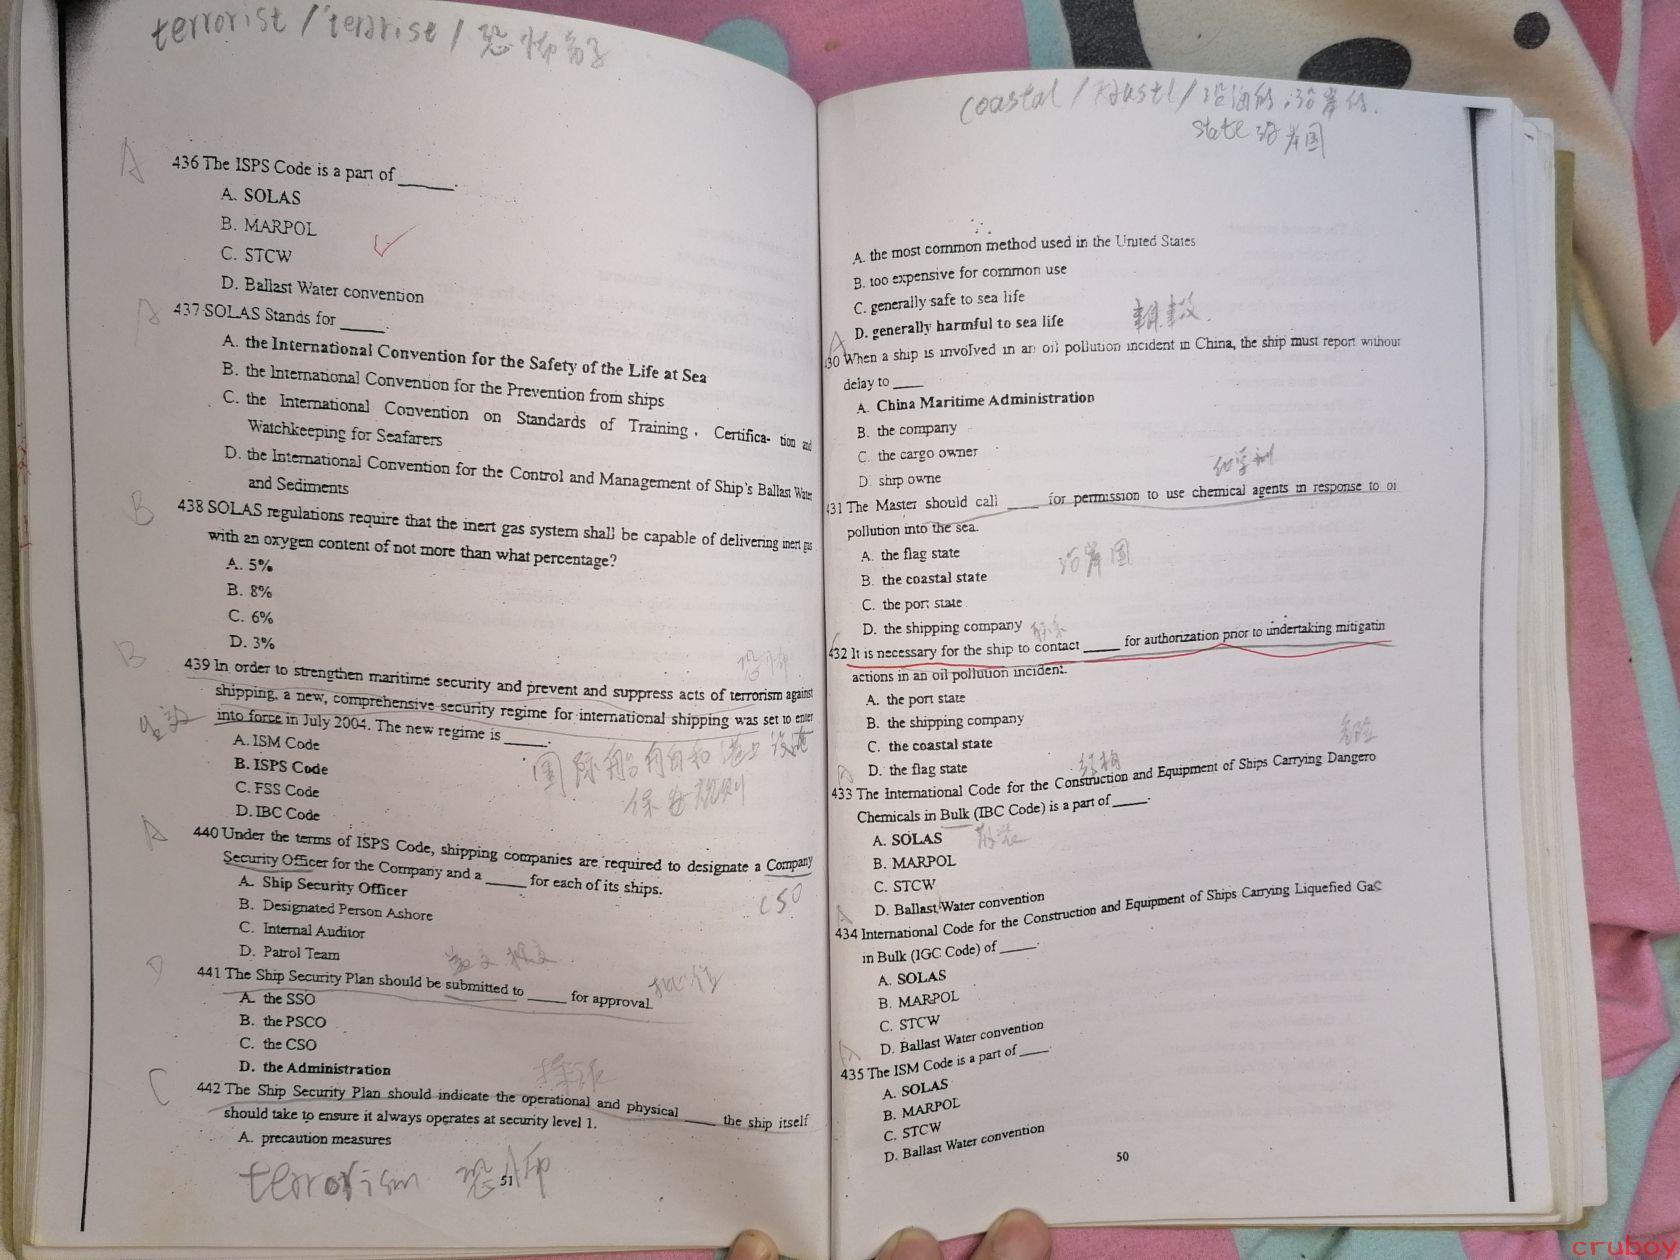 terrorist / terərist / 恐怖分子
A
436 The ISPS Code is a part of ______.
A. SOLAS
B. MARPOL
C. STCW
D. Ballast Water convention
A
437 SOLAS Stands for _____.
A. the International Convention for the Safety of the Life at Sea
B. the International Convention for the Prevention from ships
C. the International Convention on Standards of Training, Certifica- tion and
Watchkeeping for Seafarers
D. the International Convention for the Control and Management of Ship's Ballast Water
and Sediments
B
438 SOLAS regulations require that the inert gas system shall be capable of delivering inert gas
with an oxygen content of not more than what percentage?
A. 5%
B. 8%
C. 6%
D. 3%
恐怖
B
439 In order to strengthen maritime security and prevent and suppress acts of terrorism against
shipping, a new, comprehensive security regime for international shipping was set to enter
into force in July 2004. The new regime is _____.
A. ISM Code
B. ISPS Code
C. FSS Code
D. IBC Code
国际船舶和港口设施
保安规则
A
440 Under the terms of ISPS Code, shipping companies are required to designate a Company
Security Officer for the Company and a _____ for each of its ships.
CSO
A. Ship Security Officer
B. Designated Person Ashore
C. Internal Auditor
D. Patrol Team
D
441 The Ship Security Plan should be submitted to _____ for approval.
A. the SSO
B. the PSCO
C. the CSO
D. the Administration
C
442 The Ship Security Plan should indicate the operational and physical ____ the ship itself
should take to ensure it always operates at security level 1.
A. precaution measures
terrorism 恐怖
51
coastal / / 沿海的;沿岸的.
state 沿岸国
A. the most common method used in the United States
B. too expensive for common use
C. generally safe to sea life
D. generally harmful to sea life
事故
A
30 When a ship is involved in an oil pollution incident in China, the ship must report without
delay to ____
A. China Maritime Administration
B. the company
C. the cargo owner
D. ship owne
化学剂
431 The Master should call ____ for permission to use chemical agents in response to oi
pollution into the sea.
A. the flag state
B. the coastal state
沿岸国
C. the port state
D. the shipping company
联系
432 It is necessary for the ship to contact _____ for authorization prior to undertaking mitigatin
actions in an oil pollution incident.
A. the port state
B. the shipping company
C. the coastal state
D. the flag state
结构
危险
A
433 The International Code for the Construction and Equipment of Ships Carrying Dangero
Chemicals in Bulk (IBC Code) is a part of _____.
A. SOLAS
散装
B. MARPOL
C. STCW
D. Ballast Water convention
A
434 International Code for the Construction and Equipment of Ships Carrying Liquefied Gas
in Bulk (IGC Code) of _____.
A. SOLAS
B. MARPOL
C. STCW
D. Ballast Water convention
A
435 The ISM Code is a part of ____.
A. SOLAS
B. MARPOL
C. STCW
D. Ballast Water convention
50
cruboy